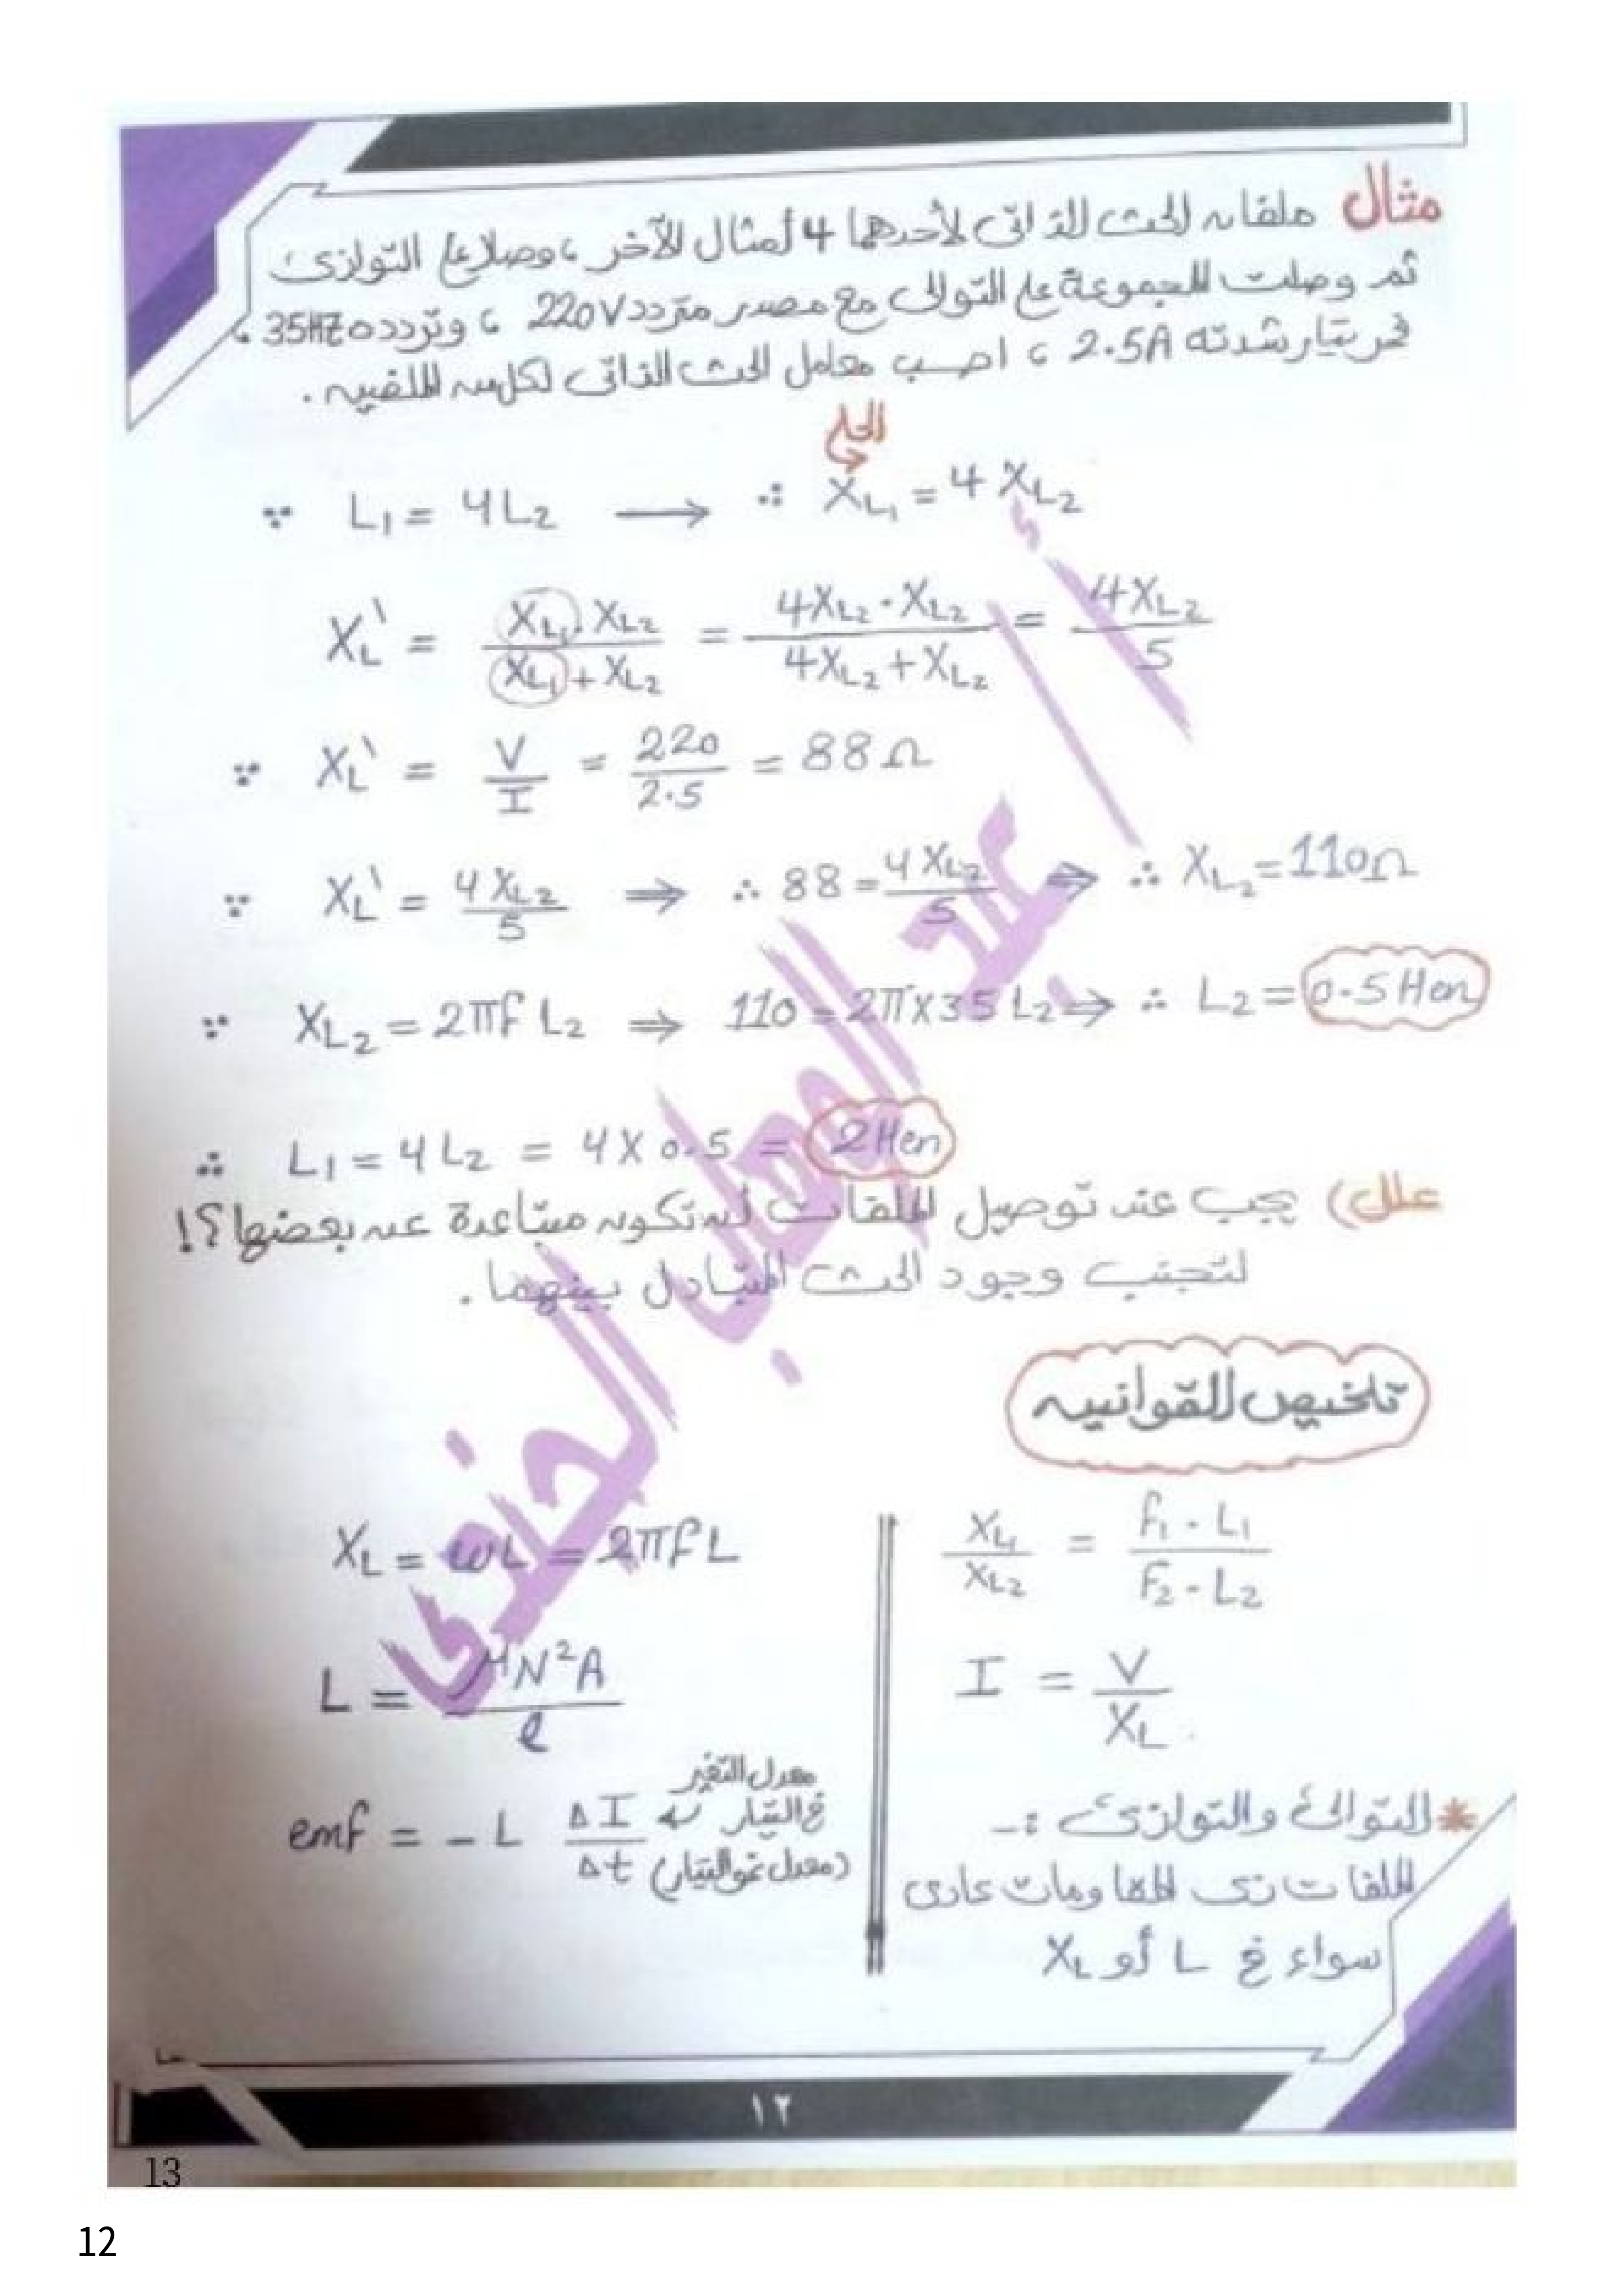 مثال ملفان الحث الذاتى لأحدهما 4 أمثال للآخر ، وصلا على التوازى
ثم وصلت المجموعة على التوالى مع مصدر متردد 220V ، وتردده 35HZ ،
فمر تيار شدته 2.5A ، احسب معامل الحث الذاتى لكل من الملفين .
الحل
∵ L1 = 4L2 ⟶ ∴ XL1 = 4XL2
XL' = XL1 . XL2 / XL1 + XL2 = 4XL2 . XL2 / 4XL2 + XL2 = 4XL2 / 5
∵ XL' = V / I = 220 / 2.5 = 88 Ω
∵ XL' = 4XL2 / 5 ⇒ ∴ 88 = 4XL2 / 5 ⇒ ∴ XL2 = 110Ω
∵ XL2 = 2πf L2 ⇒ 110 = 2π×35 L2 ⇒ ∴ L2 = 0.5 Hen
∴ L1 = 4L2 = 4 × 0.5 = 2 Hen
علل) يجب عند توصيل الملفات أن تكون متباعدة عن بعضها؟!
لتجنب وجود الحث المتبادل بينهما .
أ / عبد الوهاب الجندى
تلخيص للقوانين
XL = ωL = 2πfL
L = μN²A / l
emf = - L ΔI / Δt
معدل التغير
في التيار
(معدل نمو التيار)
XL1 / XL2 = f1 . L1 / F2 . L2
I = V / XL
* التوالى والتوازى :-
الملفات زى المقاومات عادى
سواء في L أو XL
١٢
13
12